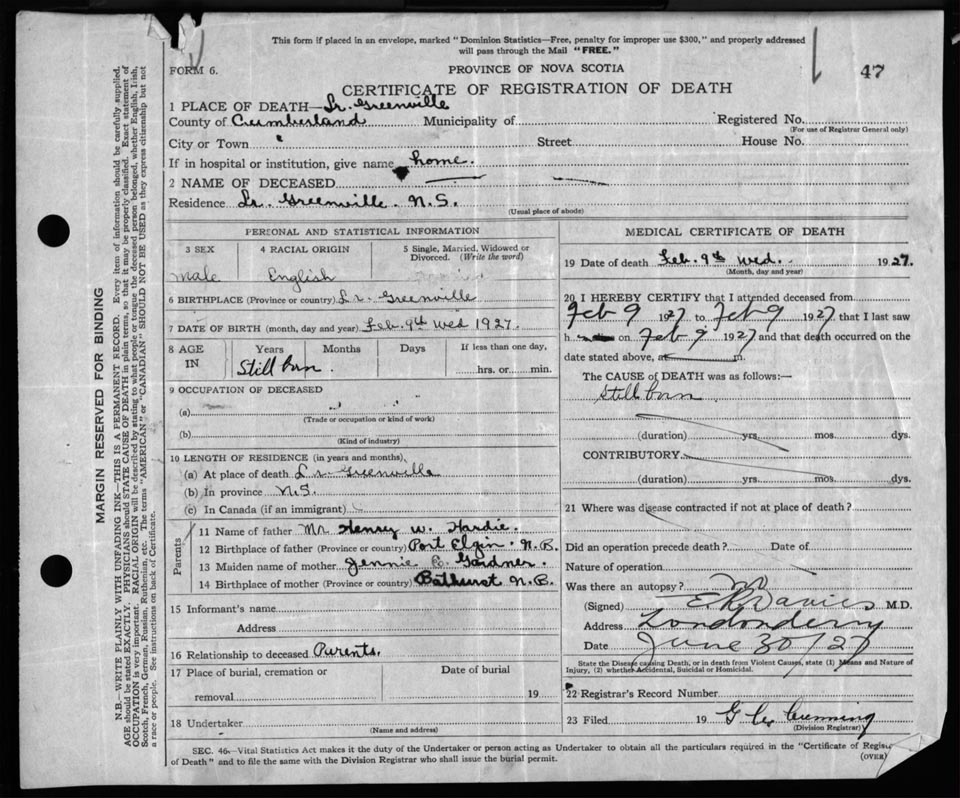 This form if placed in an envelope, marked "Dominion Statistics—Free, penalty for improper use $300," and properly addressed
will pass through the Mail "FREE."
FORM 6.
PROVINCE OF NOVA SCOTIA
47
CERTIFICATE OF REGISTRATION OF DEATH
1 PLACE OF DEATH—Lr. Greenville
County of Cumberland Municipality of Registered No.
(For use of Registrar General only)
City or Town Street House No.
If in hospital or institution, give name home.
2 NAME OF DECEASED
Residence Lr. Greenville. N.S.
(Usual place of abode)
PERSONAL AND STATISTICAL INFORMATION
3 SEX 4 RACIAL ORIGIN 5 Single, Married, Widowed or
Divorced. (Write the word)
male English
6 BIRTHPLACE (Province or country) Lr. Greenville
7 DATE OF BIRTH (month, day and year) Feb. 9th Wed 1927.
8 AGE IN Years Months Days If less than one day,
Still born. hrs. or min.
9 OCCUPATION OF DECEASED
(a)
(Trade or occupation or kind of work)
(b)
(Kind of industry)
10 LENGTH OF RESIDENCE (in years and months)
(a) At place of death Lr. Greenville
(b) In province N.S.
(c) In Canada (if an immigrant)
Parents
11 Name of father Mr. Henry W. Hardie.
12 Birthplace of father (Province or country) Port Elgin. N.B.
13 Maiden name of mother Jennie Gardner.
14 Birthplace of mother (Province or country) Bathurst N.B.
15 Informant's name
Address
16 Relationship to deceased Parents.
17 Place of burial, cremation or Date of burial
removal 19
18 Undertaker
(Name and address)
MEDICAL CERTIFICATE OF DEATH
19 Date of death Feb. 9th Wed. 1927.
(Month, day and year)
20 I HEREBY CERTIFY that I attended deceased from
Feb 9 1927 to Feb 9 1927 that I last saw
h on Feb 9 1927 and that death occurred on the
date stated above, at m.
The CAUSE of DEATH was as follows:—
Still born
(duration) yrs. mos. dys.
CONTRIBUTORY
(duration) yrs. mos. dys.
21 Where was disease contracted if not at place of death?
Did an operation precede death? Date of
Nature of operation
Was there an autopsy? no
(Signed) E.R. Davies M.D.
Address Londonderry
Date June 30/27
State the Disease causing Death, or in death from Violent Causes, state (1) Means and Nature of
Injury, (2) whether Accidental, Suicidal or Homicidal.
22 Registrar's Record Number
23 Filed 19 Cumming
(Division Registrar)
SEC. 46.—Vital Statistics Act makes it the duty of the Undertaker or person acting as Undertaker to obtain all the particulars required in the "Certificate of Regis
of Death" and to file the same with the Division Registrar who shall issue the burial permit.
(OVER)
MARGIN RESERVED FOR BINDING
N.B.—WRITE PLAINLY WITH UNFADING INK—THIS IS A PERMANENT RECORD. Every item of information should be carefully supplied.
AGE should be stated EXACTLY. PHYSICIANS should STATE CAUSE OF DEATH in plain terms, so that it may be properly classified. Exact statement of
OCCUPATION is very important. RACIAL ORIGIN will be described by stating to what people or tongue the deceased person belonged, whether English, Irish,
Scotch, French, German, Russian, Ruthenian, etc. The terms "AMERICAN" or "CANADIAN" SHOULD NOT BE USED as they express citizenship but not
a race or people. See instructions on back of Certificate.